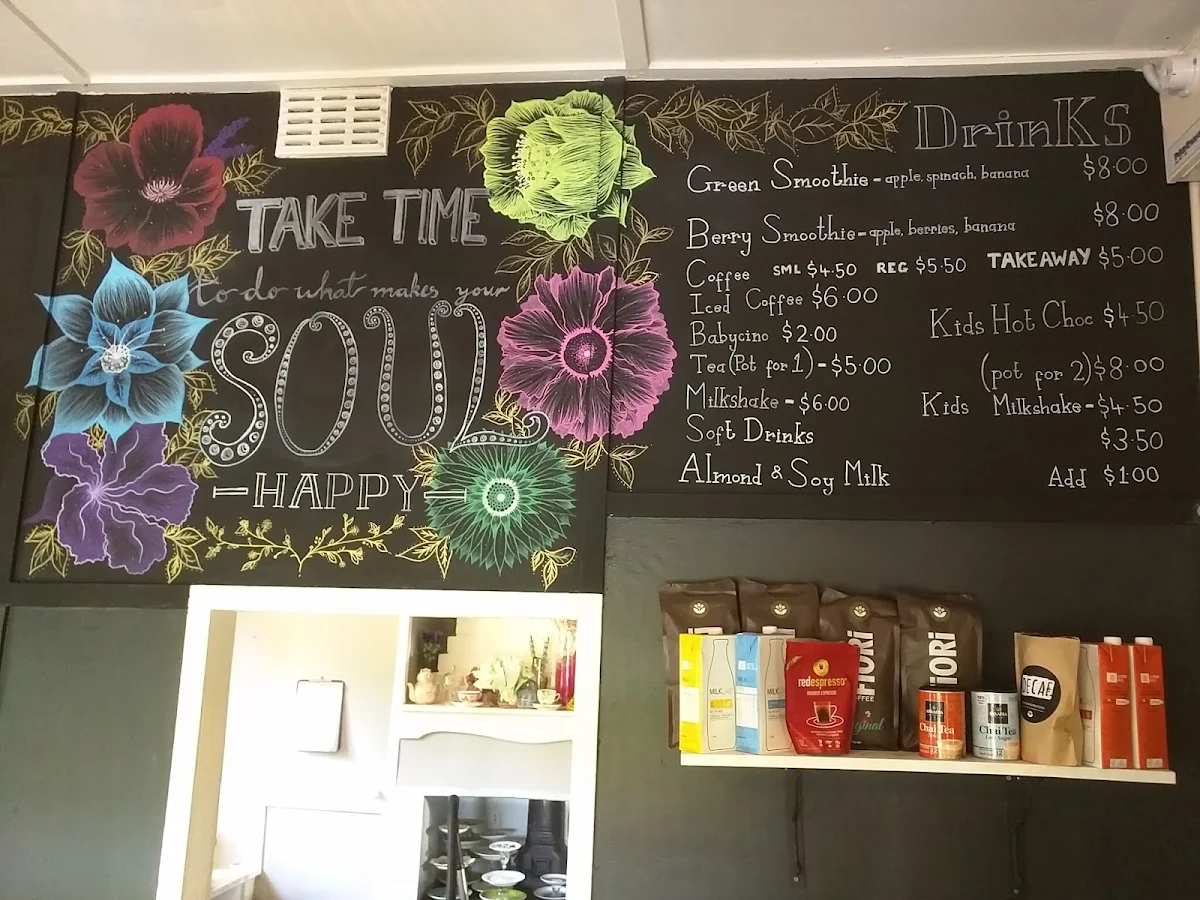 TAKE TIME
to do what makes your
SOUL
HAPPY
DrinKs
Green Smoothie - apple, spinach, banana $8.00
Berry Smoothie - apple, berries, banana $8.00
Coffee SML $4.50 REG $5.50 TAKEAWAY $5.00
Iced Coffee $6.00
Kids Hot Choc $4.50
Babycino $2.00
Tea (Pot for 1) - $5.00 (pot for 2) $8.00
Milkshake - $6.00 Kids Milkshake - $4.50
Soft Drinks $3.50
Almond & Soy Milk Add $1.00
MILK
MILK
redespresso
FIORI
COFFEE
IORI
Chai Tea
Chai Tea
DECAF